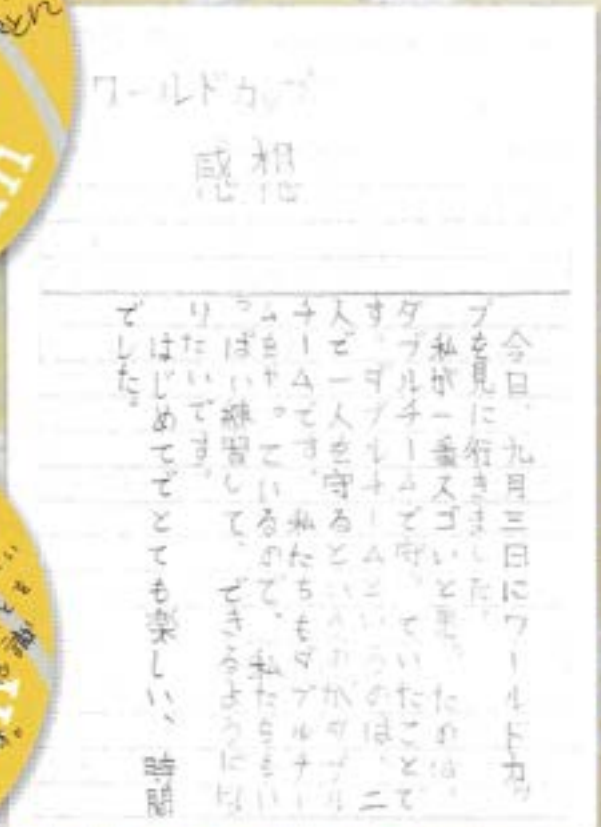 ワールドカップ
感想
今日、九月三日にワールドカッ
プを見に行きました。
私が一番スゴいと思ったのは、
ダブルチームで守っていたことで
す。ダブルチームというのは、二
人で一人を守るというのがダブル
チームです。私たちもダブルチー
ムをやっているので、私たちもい
っぱい練習して、できるようにな
りたいです。
はじめてでとても楽しい、時間
でした。